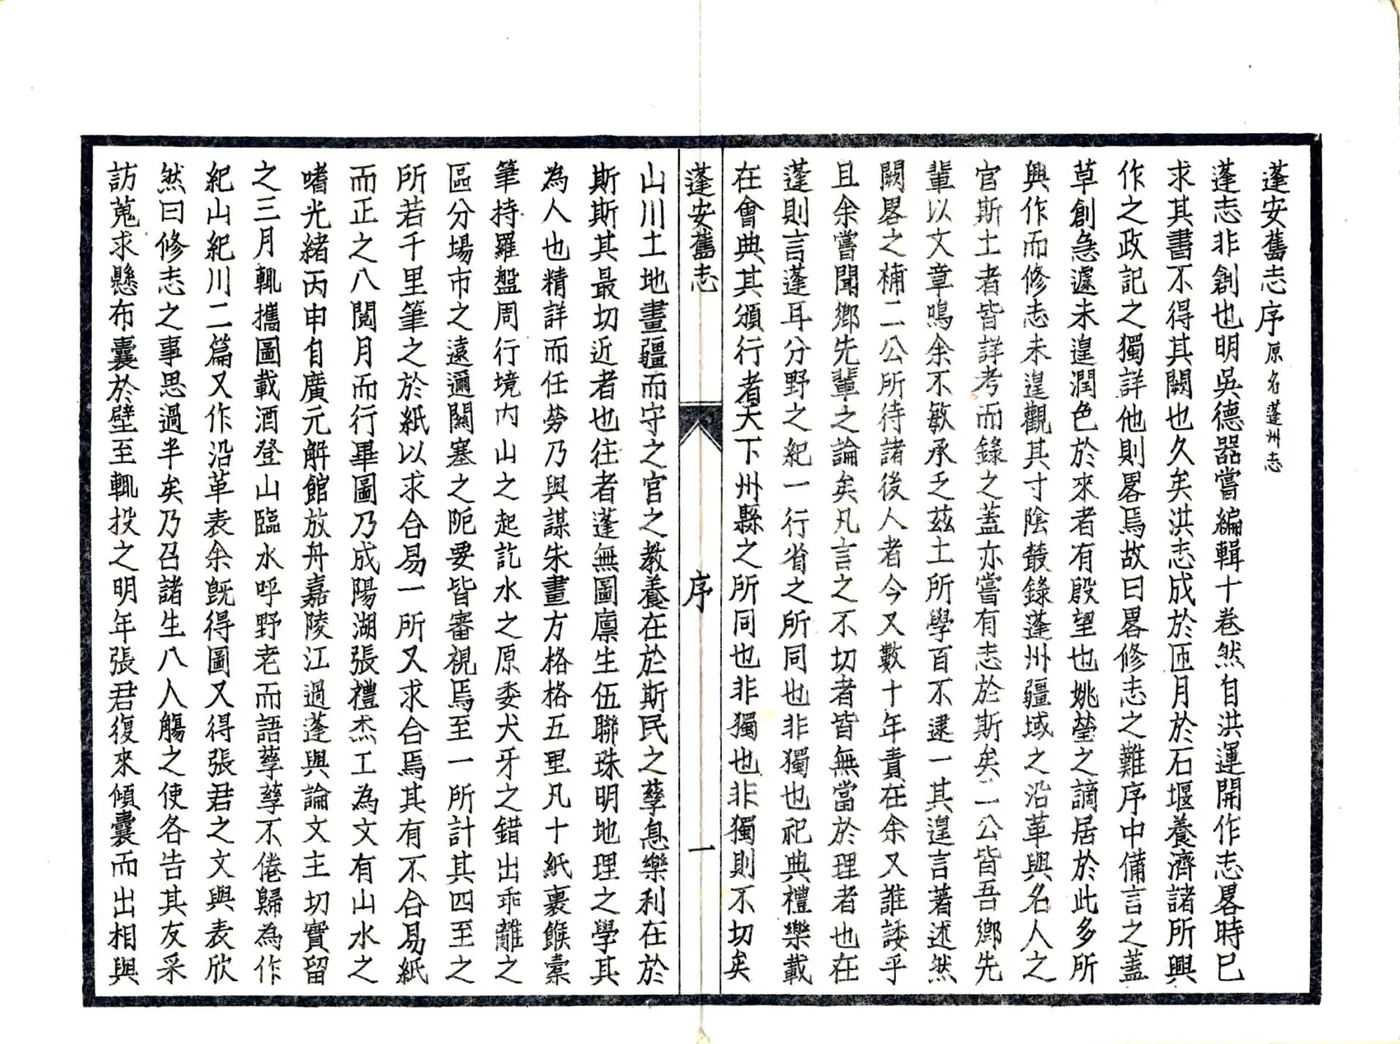 蓬安舊志序原名蓬州志
蓬志非創也明吳德器嘗編輯十卷然自洪運開作志畧時已
求其書不得其闕也久矣洪志成於匝月於石堰養濟諸所興
作之政記之獨詳他則畧焉故曰畧修志之難序中備言之蓋
草創急遽未遑潤色於來者有殷望也姚瑩之謫居於此多所
興作而修志未遑觀其寸陰叢錄蓬州疆域之沿革與名人之
官斯土者皆詳考而錄之蓋亦嘗有志於斯矣二公皆吾鄉先
輩以文章鳴余不敏承乏茲土所學百不逮一其遑言著述然
闕畧之補二公所待諸後人者今又數十年責在余又誰諉乎
且余嘗聞鄉先輩之論矣凡言之不切者皆無當於理者也在
蓬則言蓬耳分野之紀一行省之所同也非獨也祀典禮樂載
在會典其頒行者天下州縣之所同也非獨也非獨則不切矣
蓬安舊志 序 一
山川土地畫疆而守之官之教養在於斯民之孳息樂利在於
斯斯其最切近者也往者蓬無圖廩生伍聯珠明地理之學其
為人也精詳而任勞乃與謀朱畫方格格五里凡十紙裹餱橐
筆持羅盤周行境內山之起訖水之原委犬牙之錯出乖離之
區分場市之遠邇關塞之阨要皆審視焉至一所計其四至之
所若干里筆之於紙以求合易一所又求合焉其有不合易紙
而正之八閱月而行畢圖乃成陽湖張禮杰工為文有山水之
嗜光緒丙申自廣元解館放舟嘉陵江過蓬與論文主切實留
之三月輒攜圖載酒登山臨水呼野老而語孳孳不倦歸為作
紀山紀川二篇又作沿革表余旣得圖又得張君之文與表欣
然曰修志之事思過半矣乃召諸生八人觴之使各告其友采
訪蒐求懸布囊於壁至輒投之明年張君復來傾囊而出相與